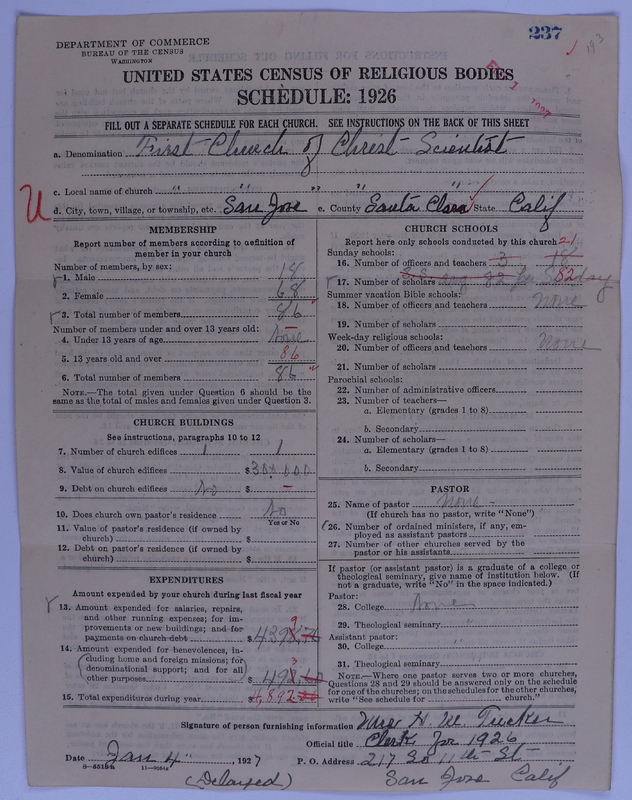 237
DEPARTMENT OF COMMERCE
BUREAU OF THE CENSUS
WASHINGTON
UNITED STATES CENSUS OF RELIGIOUS BODIES
SCHEDULE: 1926
FILL OUT A SEPARATE SCHEDULE FOR EACH CHURCH. SEE INSTRUCTIONS ON THE BACK OF THIS SHEET
a. Denomination First Church of Christ Scientist
c. Local name of church " " " " "
U d. City, town, village, or township, etc. San Jose e. County Santa Clara State Calif
MEMBERSHIP
Report number of members according to definition of
member in your church
Number of members, by sex:
1. Male 18
2. Female 68
3. Total number of members 86
Number of members under and over 13 years old:
4. Under 13 years of age None
5. 13 years old and over 86
6. Total number of members 86
NOTE.—The total given under Question 6 should be
same as the total of males and females given under Question 3.
CHURCH BUILDINGS
See instructions, paragraphs 10 to 12
7. Number of church edifices 1 1
8. Value of church edifices $
9. Debt on church edifices No $ —
10. Does church own pastor's residence No
Yes or No
11. Value of pastor's residence (if owned by
church) $
12. Debt on pastor's residence (if owned by
church) $
EXPENDITURES
Amount expended by your church during last fiscal year
13. Amount expended for salaries, repairs,
and other running expenses; for im-
provements or new buildings; and for
payments on church debt $ 4398
14. Amount expended for benevolences, in-
cluding home and foreign missions; for
denominational support; and for all
other purposes $ 493
15. Total expenditures during year $ 4,892
CHURCH SCHOOLS
Report here only schools conducted by this church 21
Sunday schools:
16. Number of officers and teachers 3 18
17. Number of scholars 82
Summer vacation Bible schools:
18. Number of officers and teachers None
19. Number of scholars
Week-day religious schools:
20. Number of officers and teachers None
21. Number of scholars
Parochial schools:
22. Number of administrative officers
23. Number of teachers—
a. Elementary (grades 1 to 8)
b. Secondary
24. Number of scholars—
a. Elementary (grades 1 to 8)
b. Secondary
PASTOR
25. Name of pastor None -
(If church has no pastor, write "None")
26. Number of ordained ministers, if any, em-
ployed as assistant pastors
27. Number of other churches served by the
pastor or his assistants
If pastor (or assistant pastor) is a graduate of a college or
theological seminary, give name of institution below. (If
not a graduate, write "No" in the space indicated.)
Pastor:
28. College None
29. Theological seminary "
Assistant pastor:
30. College "
31. Theological seminary
NOTE.—Where one pastor serves two or more churches,
Questions 28 and 29 should be answered only on the schedule
for one of the churches; on the schedules for the other churches,
write "See schedule for church."
Signature of person furnishing information Mrs H. W. Tucker
Official title Clerk for 1926
Date Jan 4" , 1927 P. O. Address 217 So 11th St
8—5515a 11—9051a
(Delayed) San Jose Calif